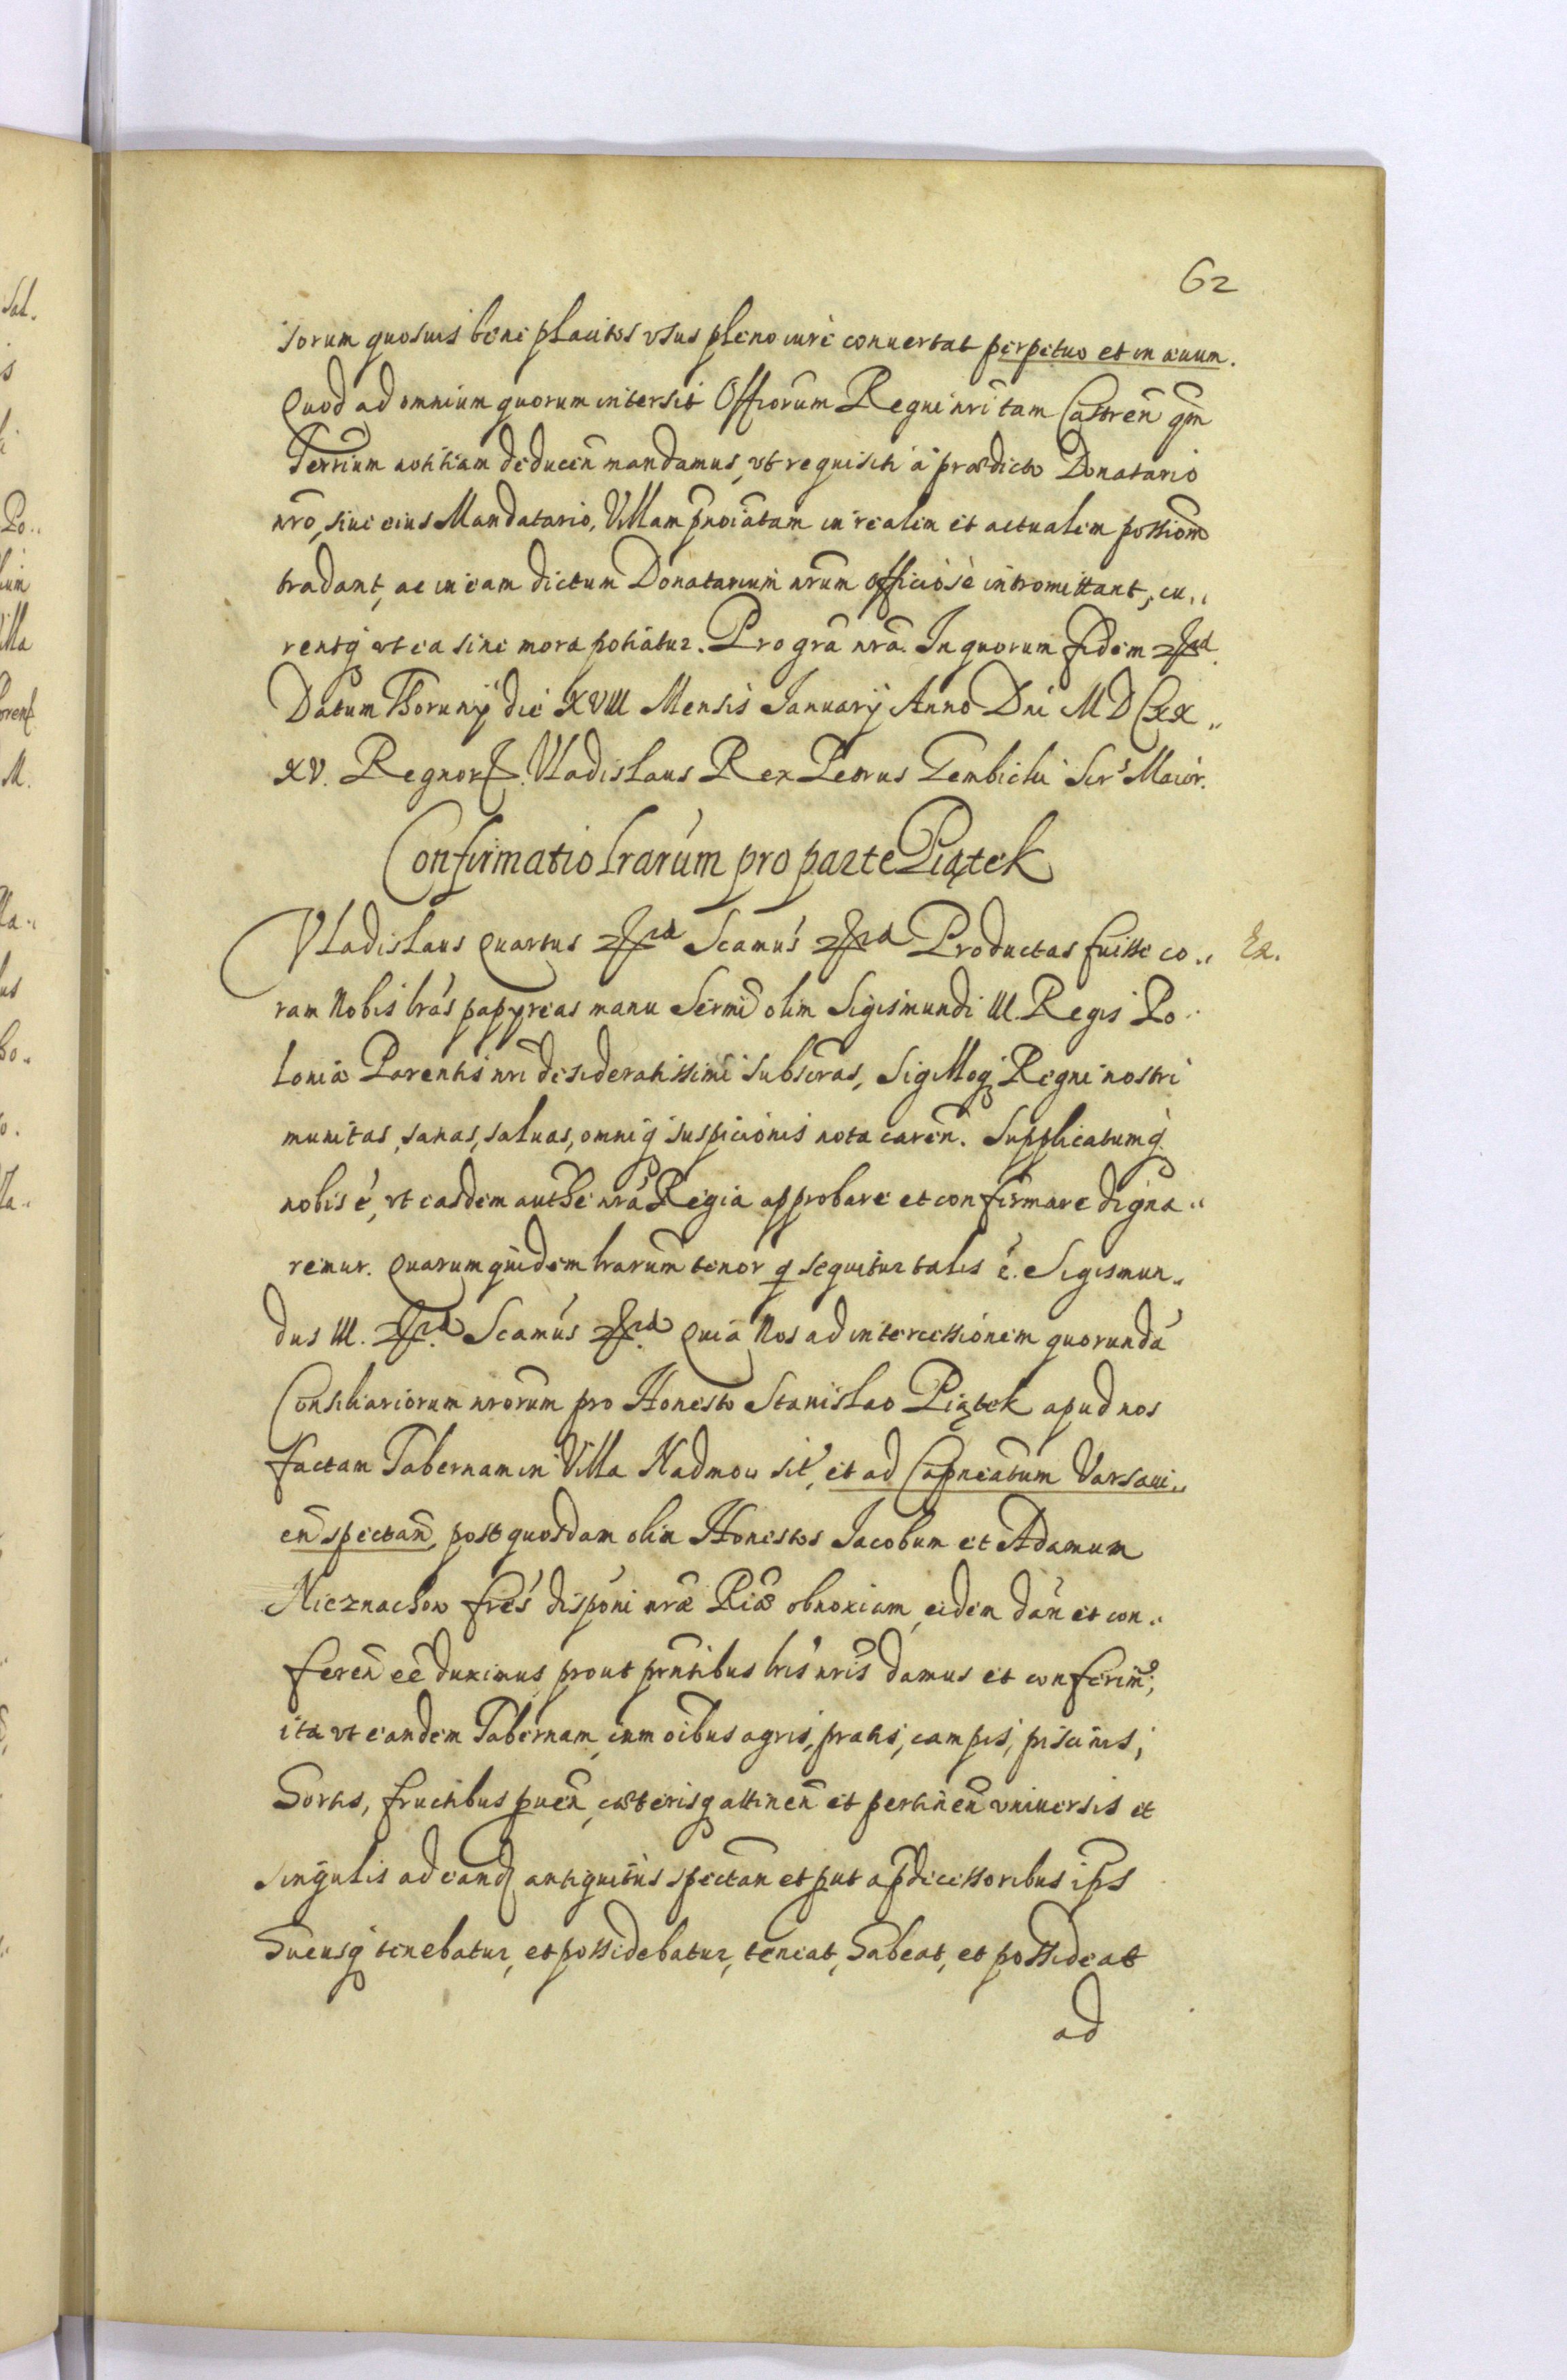 62
sorum quosuis bene placitos vsus pleno iure conuertat perpetuo et in æuum.
Quod ad omnium quorum intersit Offiorum Regni nri tam Castren̄ qm̄
Terrium notitiam deducen̄ mandamus, vt requisiti à prædicto Donatario
nr̄o, siue eius Mandatario, Villam pn̄oiatam in realem et actualem possiōm
tradant, ac in eam dictum Donatarium nr̄um officiosè intromittant, cu„
rentq̨ vt ea sine mora potiatur. Pro grã nrã. In quorum fidem
Datum Thorunÿ die XVIII Mensis Januarÿ Anno Dni MDCXX„
XV. Regnor Vladislaus Rex Petrus Gembicki Scrs Maior.
Confirmatio lrarum pro parte Piątek
Vladislaus Quartus Scamus Productas fuisse co„
Ex.
ram Nobis lrãs papyreas manu Sermĩ olim Sigismundi III. Regis Po„
loniæ Parentis nri desideratissimi subscras, Sigilloq̨ Regni nostri
munitas, sanas, saluas, omniq̨ suspicionis nota caren̄. Supplicatumq̨
nobis é, vt easdem autthe nrã Regia approbare et confirmare digna„
remur. Quarum quidem lrarum tenor q sequitur talis é. Sigismun„
dus III. Scamus Quia Nos ad intercessionem quorundã
Consiliariorum nrorum pro Honesto Stanislao Piątek apud nos
factam Tabernam in Villa Nadmow sit, et ad Capneatum Varsaui„
en̄ spectan̄, post quosdam olim Honestos Jacobum et Adamum
Nieznachow frēs dispōni nræ Riæ obnoxiam, eidem dan̄ et con„
feren̄ eē duximus, prout prntibus lris nris damus et conferim9,
ita vt eandem Tabernam, cum oībus agris, pratis, campis, piscinis,
Hortis, fructibus puen̄, cæterisq̨ attinen̄ et pertinen̄ vniuersis et
singulis ad eand antiquitùs spectan̄ et put a pdecessoribus ips
Hucusq̨ tenebatur, et possidebatur, teneat, Habeat, et possideat
ad